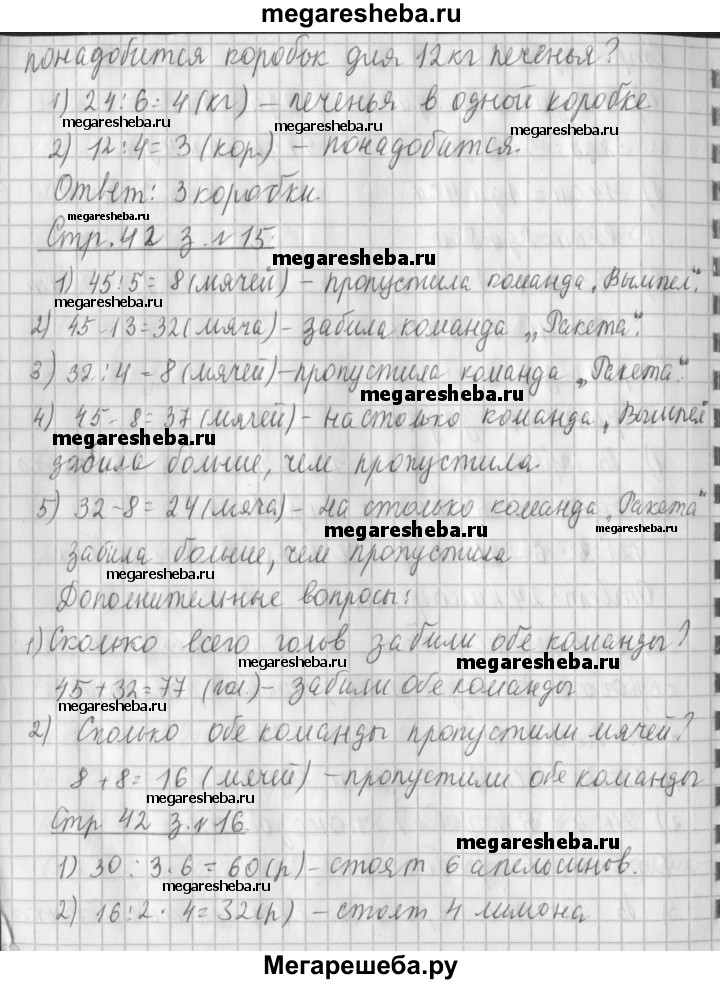 megaresheba.ru
понадобится коробок для 12 кг печенья?
1) 24:6=4 (кг) – печенья в одной коробке
megaresheba.ru megaresheba.ru megaresheba.ru
2) 12:4=3 (кор.) – понадобится.
Ответ: 3 коробки.
megaresheba.ru
Стр. 42 з. №15.
megaresheba.ru
1) 45:5=8 (мячей) – пропустила команда „Вымпел“.
megaresheba.ru
2) 45-13=32 (мяча) – забила команда „Ракета“.
3) 32:4=8 (мячей) – пропустила команда „Ракета“.
megaresheba.ru
4) 45-8=37 (мячей) – на столько команда „Вымпел“
megaresheba.ru
забила больше, чем пропустила.
5) 32-8=24 (мяча) – на столько команда „Ракета“
megaresheba.ru megaresheba.ru
забила больше, чем пропустила
megaresheba.ru
Дополнительные вопросы:
1) Сколько всего голов забили обе команды?
megaresheba.ru megaresheba.ru
45+32=77 (гол.) – забили обе команды
megaresheba.ru
2) Сколько обе команды пропустили мячей?
8+8=16 (мячей) – пропустили обе команды
megaresheba.ru
Стр 42 з. №16
megaresheba.ru
1) 30:3·6=60 (р) – стоят 6 апельсинов.
megaresheba.ru
2) 16:2·4=32 (р) – стоят 4 лимона
Мегарешеба.ру